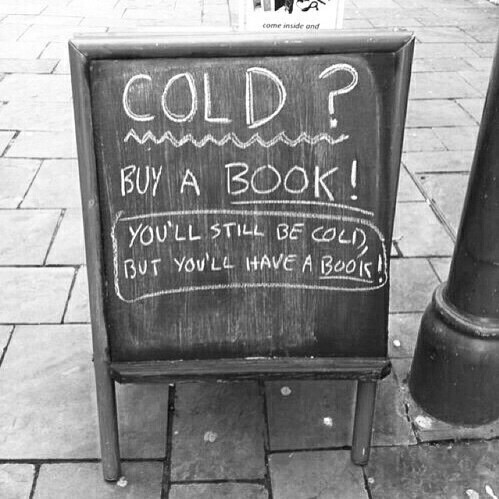 come inside and
COLD ?
BUY A BOOK!
YOU'LL STILL BE COLD,
BUT YOU'LL HAVE A BOOK!